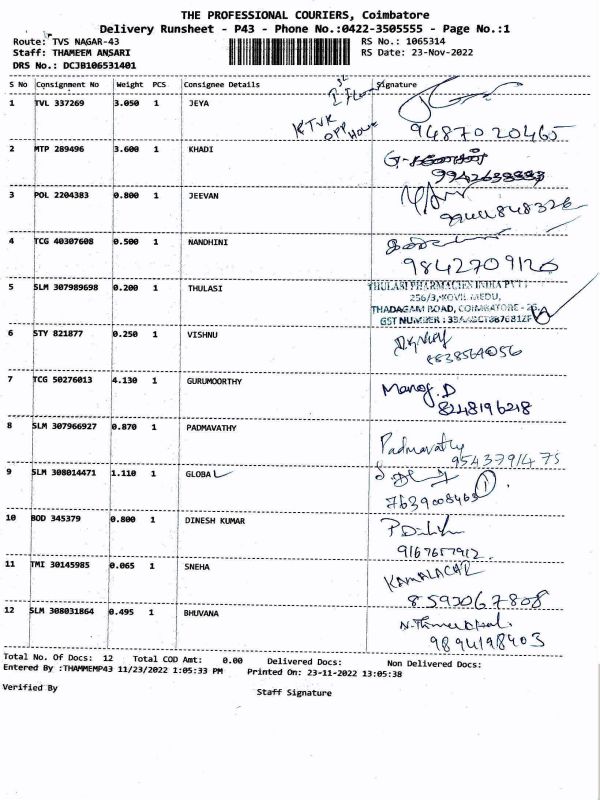 THE PROFESSIONAL COURIERS, Coimbatore
Delivery Runsheet - P43 - Phone No.:0422-3505555 - Page No.:1
Route: TVS NAGAR-43 RS No.: 1065314
Staff: THAMEEM ANSARI RS Date: 23-Nov-2022
DRS No.: DCJB106531401
S No Consignment No Weight PCS Consignee Details Signature
1 TVL 337269 3.050 1 JEYA
KTVR
OPP House
94870 20465
2 MTP 289496 3.600 1 KHADI
3 POL 2204383 0.800 1 JEEVAN
4 TCG 40307608 0.500 1 NANDHINI
9842709126
5 SLM 307989698 0.200 1 THULASI
THULASI PHARMACIES INDIA PVT
256/3, KOVIL MEDU,
THADAGAM ROAD, COIMBATORE - 25
GST NUMBER :
6 STY 821877 0.250 1 VISHNU
7 TCG 50276013 4.130 1 GURUMOORTHY
Manoj. D
8248196218
8 SLM 307966927 0.870 1 PADMAVATHY
Padmavathy
9543791475
9 SLM 308014471 1.110 1 GLOBAL
1
10 BOD 345379 0.800 1 DINESH KUMAR
9167657912
11 TMI 30145985 0.065 1 SNEHA
8593067808
12 SLM 308031864 0.495 1 BHUVANA
9894198403
Total No. Of Docs: 12 Total COD Amt: 0.00 Delivered Docs: Non Delivered Docs:
Entered By :THAMMEMP43 11/23/2022 1:05:33 PM Printed On: 23-11-2022 13:05:38
Verified By Staff Signature